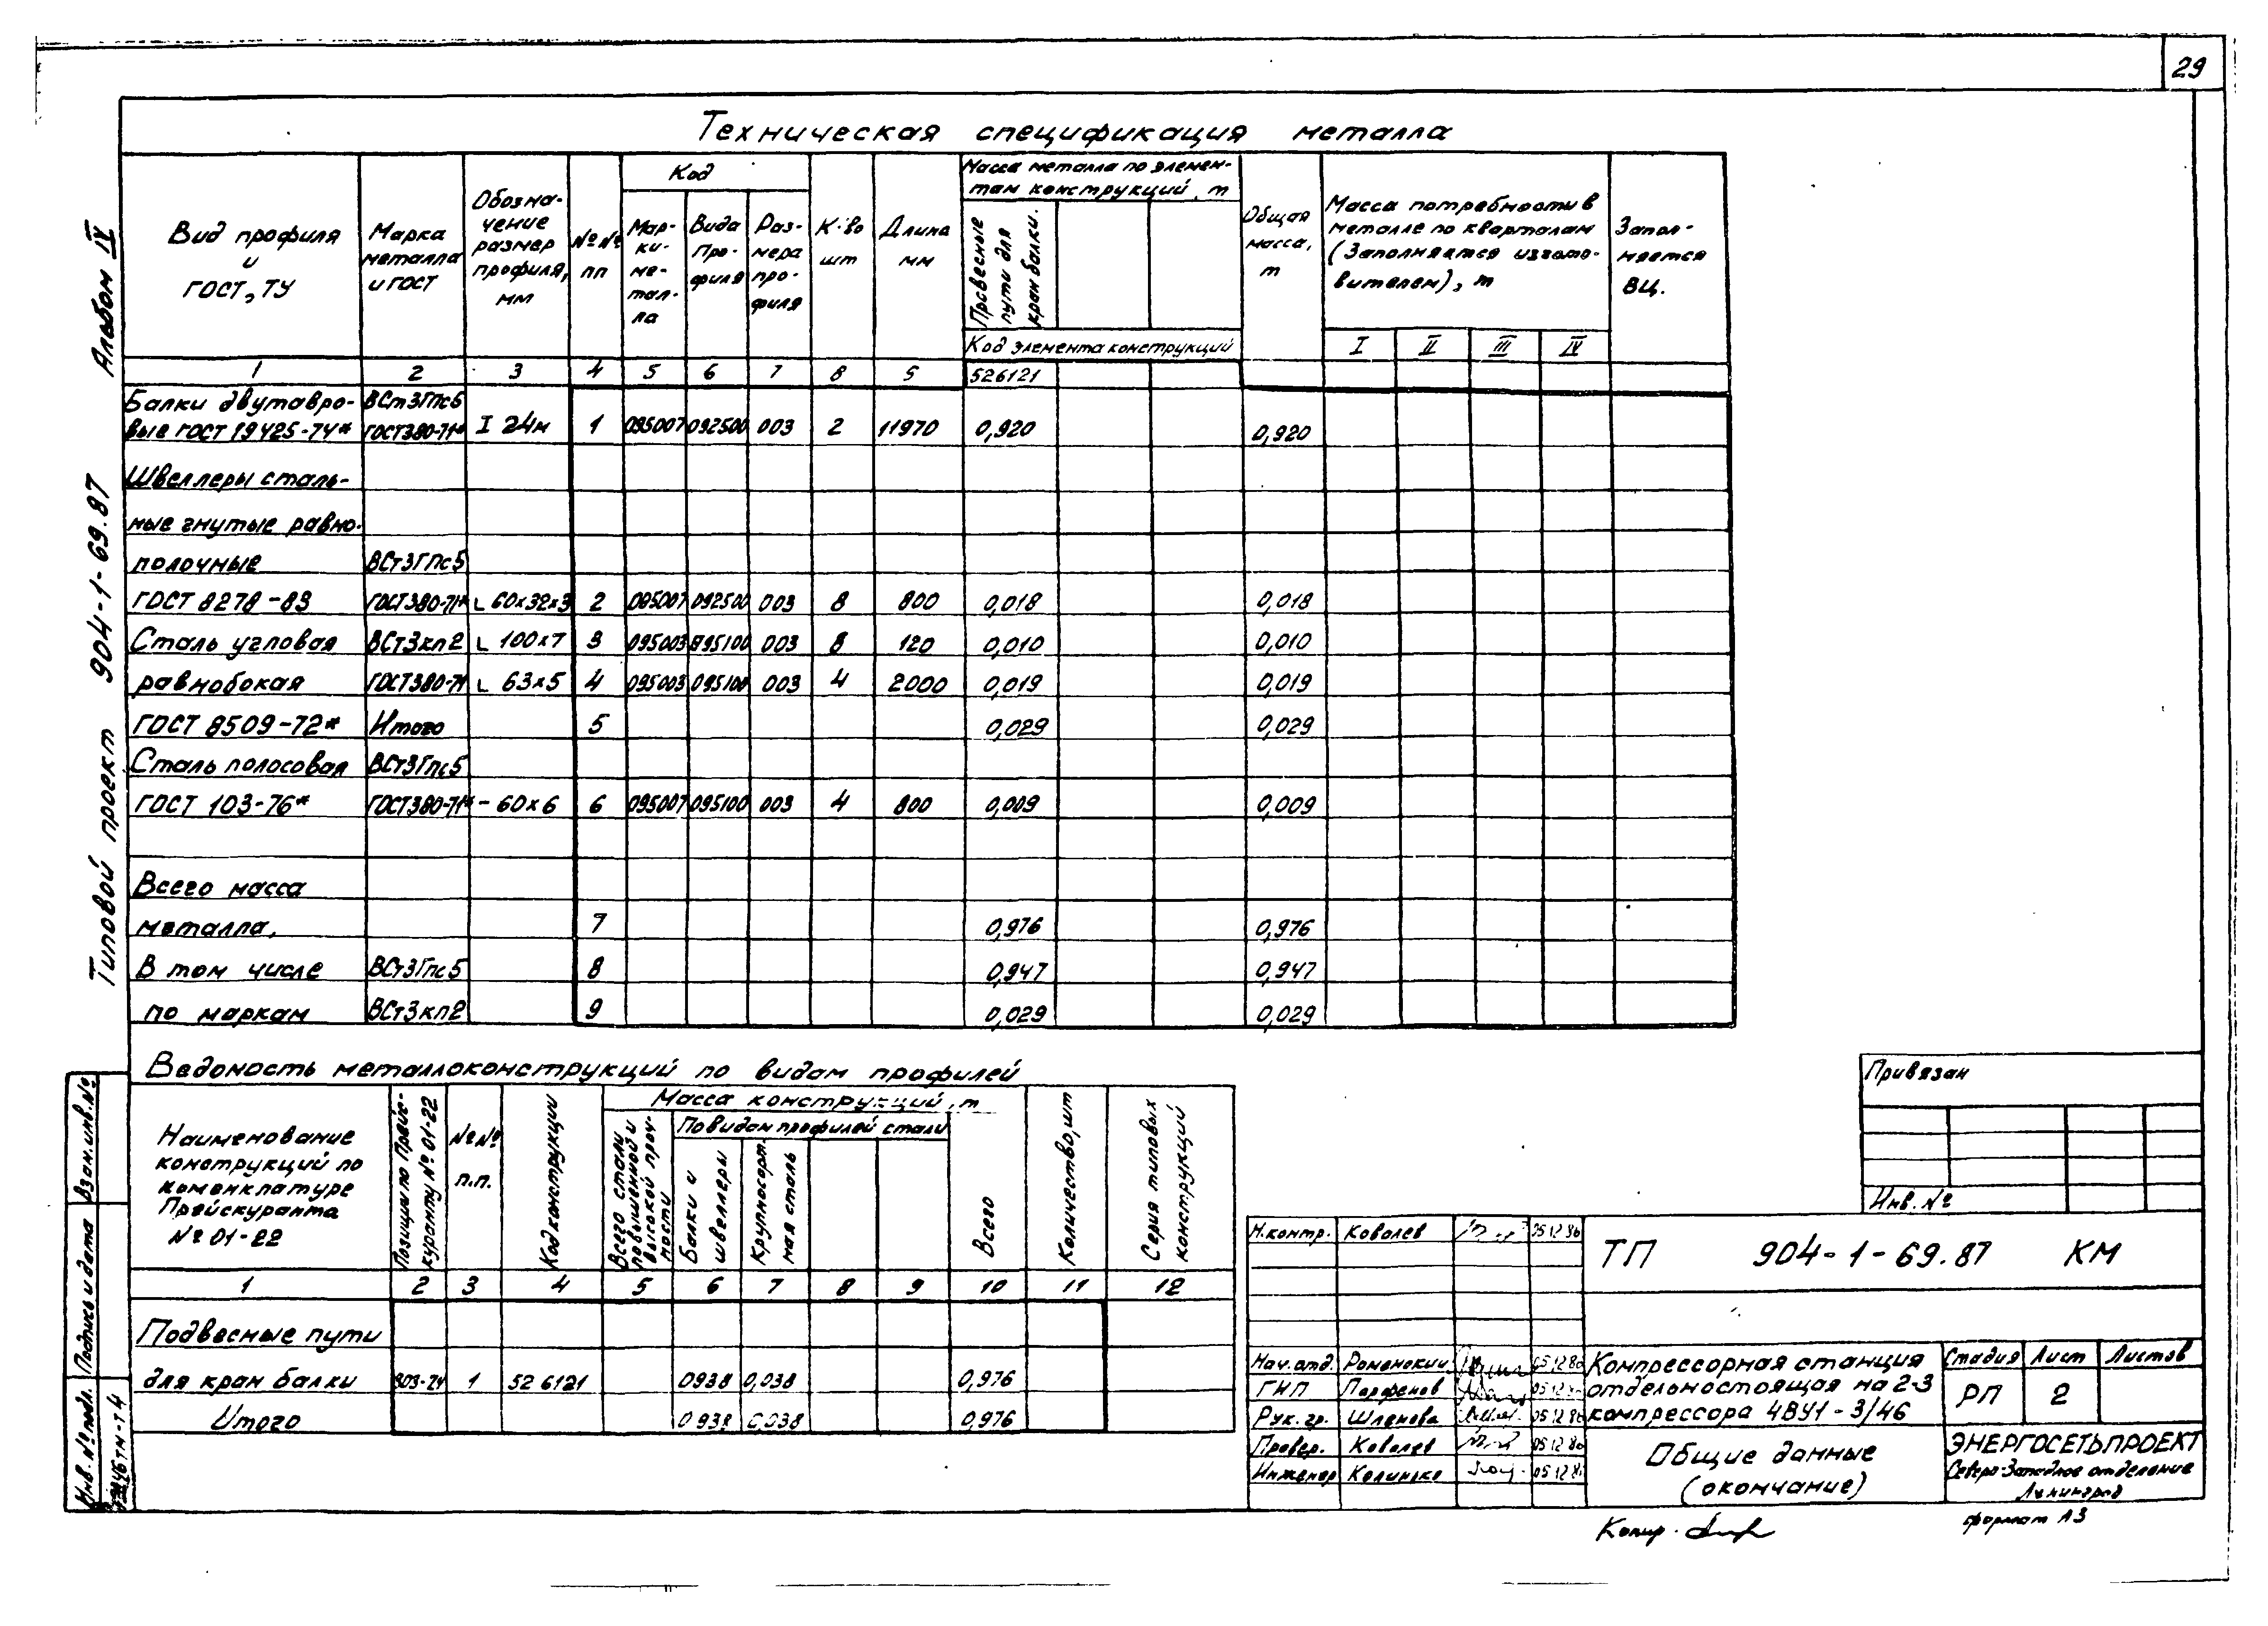 29
Альбом IV
Типовой проект 904-1-69.87
Техническая спецификация металла
Вид профиля и ГОСТ, ТУ
Марка металла и ГОСТ
Обозначение размер профиля, мм
№№ пп
Код
Марки металла
Вида профиля
Размера профиля
К-во шт
Длина мм
Масса металла по элементам конструкций, т
Подвесные пути для кран балки.
Код элемента конструкций
Общая масса, т
Масса потребности в металле по кварталам (Заполняется изготовителем), т
I II III IV
Заполняется ВЦ.
1 2 3 4 5 6 7 8 9 526121
Балки двутавро- ВСт3Гпс5
вые ГОСТ 19425-74* ГОСТ380-71* I 24м 1 095007 092500 003 2 11970 0,920 0,920
Швеллеры сталь-
ные гнутые равно-
полочные ВСт3Гпс5
ГОСТ 8278-83 ГОСТ380-71* 60х32х3 2 095007 092500 003 8 800 0,018 0,018
Сталь угловая ВСт3кп2 L 100х7 3 095003 095100 003 8 120 0,010 0,010
равнобокая ГОСТ380-71 L 63х5 4 095003 095100 003 4 2000 0,019 0,019
ГОСТ 8509-72* Итого 5 0,029 0,029
Сталь полосовая ВСт3Гпс5
ГОСТ 103-76* ГОСТ380-71* - 60х6 6 095007 095100 003 4 800 0,009 0,009
Всего масса
металла, 7 0,976 0,976
В том числе ВСт3Гпс5 8 0,947 0,947
по маркам ВСт3кп2 9 0,029 0,029
Ведомость металлоконструкций по видам профилей
Наименование конструкций по номенклатуре Прейскуранта № 01-22
Позиции по Прейскуранту № 01-22
№№ п.п.
Код конструкции
Масса конструкций, т
Всего стали повышенной и высокой прочности
По видам профилей стали
Балки и швеллеры
Крупносортная сталь
Всего
Количество, шт
Серия типовых конструкций
1 2 3 4 5 6 7 8 9 10 11 12
Подвесные пути
для кран балки 1 526121 0938 0,038 0,976
Итого 0938 0,038 0,976
Взам.инв.№
Подпись и дата
Инв.№ подл.
Привязан
Инв. №
Н.контр. Ковалев 05 12 86
ТП 904-1-69.87 КМ
Нач.отд. Роменский 05 12 86
ГИП Парфенов 05 12 86
Рук.гр. 05 12 86
Провер. Ковалев 05 12 86
Инженер 05 12 86
Компрессорная станция
отдельностоящая на 2-3
компрессора 4ВУ1-3/46
Стадия Лист Листов
РП 2
Общие данные
(окончание)
ЭНЕРГОСЕТЬПРОЕКТ
Северо-Западное отделение
Ленинград
Копир.
формат А3